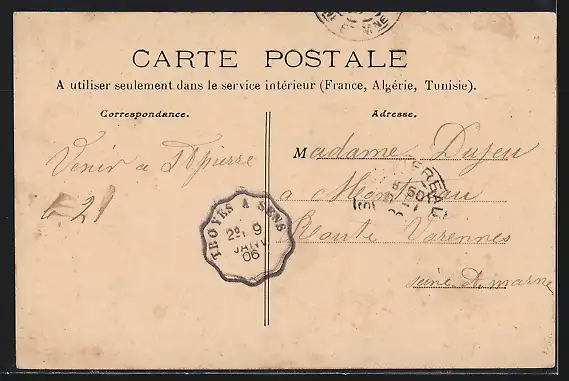 CARTE POSTALE
A utiliser seulement dans le service intérieur (France, Algérie, Tunisie).
Correspondance.
Adresse.
Venir a St pierre
le 21
Madame Dujeu
a
Route Varennes
seine et marne
TROYES A SENS
2º 9
JANV
06